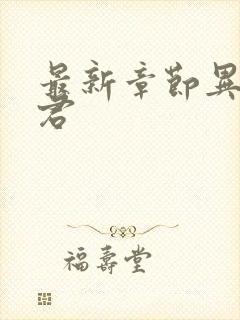 最新章節異
君
福壽堂